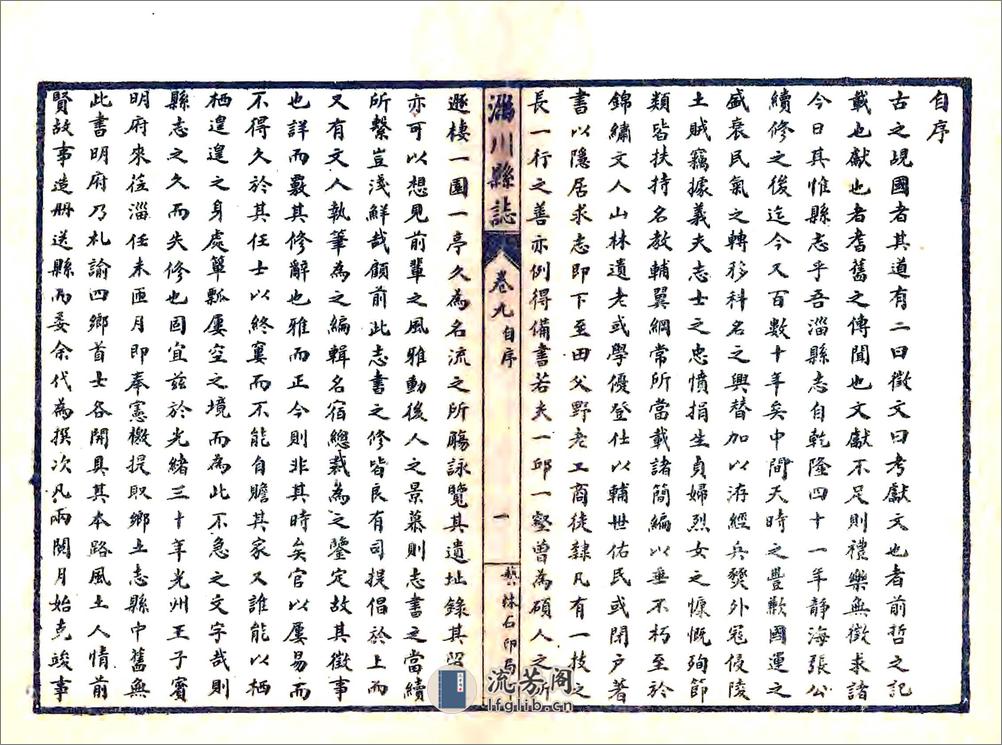 自序
古之覘國者其道有二曰徵文曰考獻文也者前哲之記
載也獻也者耆舊之傳聞也文獻不足則禮樂無徵求諸
今日其惟縣志乎吾淄縣志自乾隆四十一年靜海張公
續修之後迄今又百數十年矣中間天時之豐歉國運之
盛衰民氣之轉移科名之興替加以洊經兵燹外寇侵陵
土賊竊據義夫志士之忠憤捐生貞婦烈女之慷慨殉節
類皆扶持名教輔翼綱常所當載諸簡編以垂不朽至於
錦繡文人山林遺老或學優登仕以輔世佑民或閉户著
書以隱居求志即下至田父野老工商徒隸凡有一技之
長一行之善亦例得備書若夫一邱一壑曾為碩人之所
淄川縣誌
卷九自序
一
藝林石印局
遯棲一園一亭久為名流之所觴詠覽其遺址錄其留
亦可以想見前輩之風雅動後人之景慕則志書之當續
所繫豈淺鮮哉顧前此志書之修皆良有司提倡於上而
又有文人執筆為之編輯名宿總裁為之鑒定故其徵事
也詳而覈其修辭也雅而正今則非其時矣官以屢易而
不得久於其任士以終窶而不能自贍其家又誰能以栖
栖遑遑之身處簞瓢屢空之境而為此不急之文字哉則
縣志之久而失修也固宜茲於光緒三十年光州王子賓
明府來蒞淄任未匝月即奉憲檄提取鄉土志縣中舊無
此書明府乃札諭四鄉首士各開具其本路風土人情前
賢故事造册送縣而委余代為撰次凡兩閱月始克竣事
流芳阁
lfglib.cn